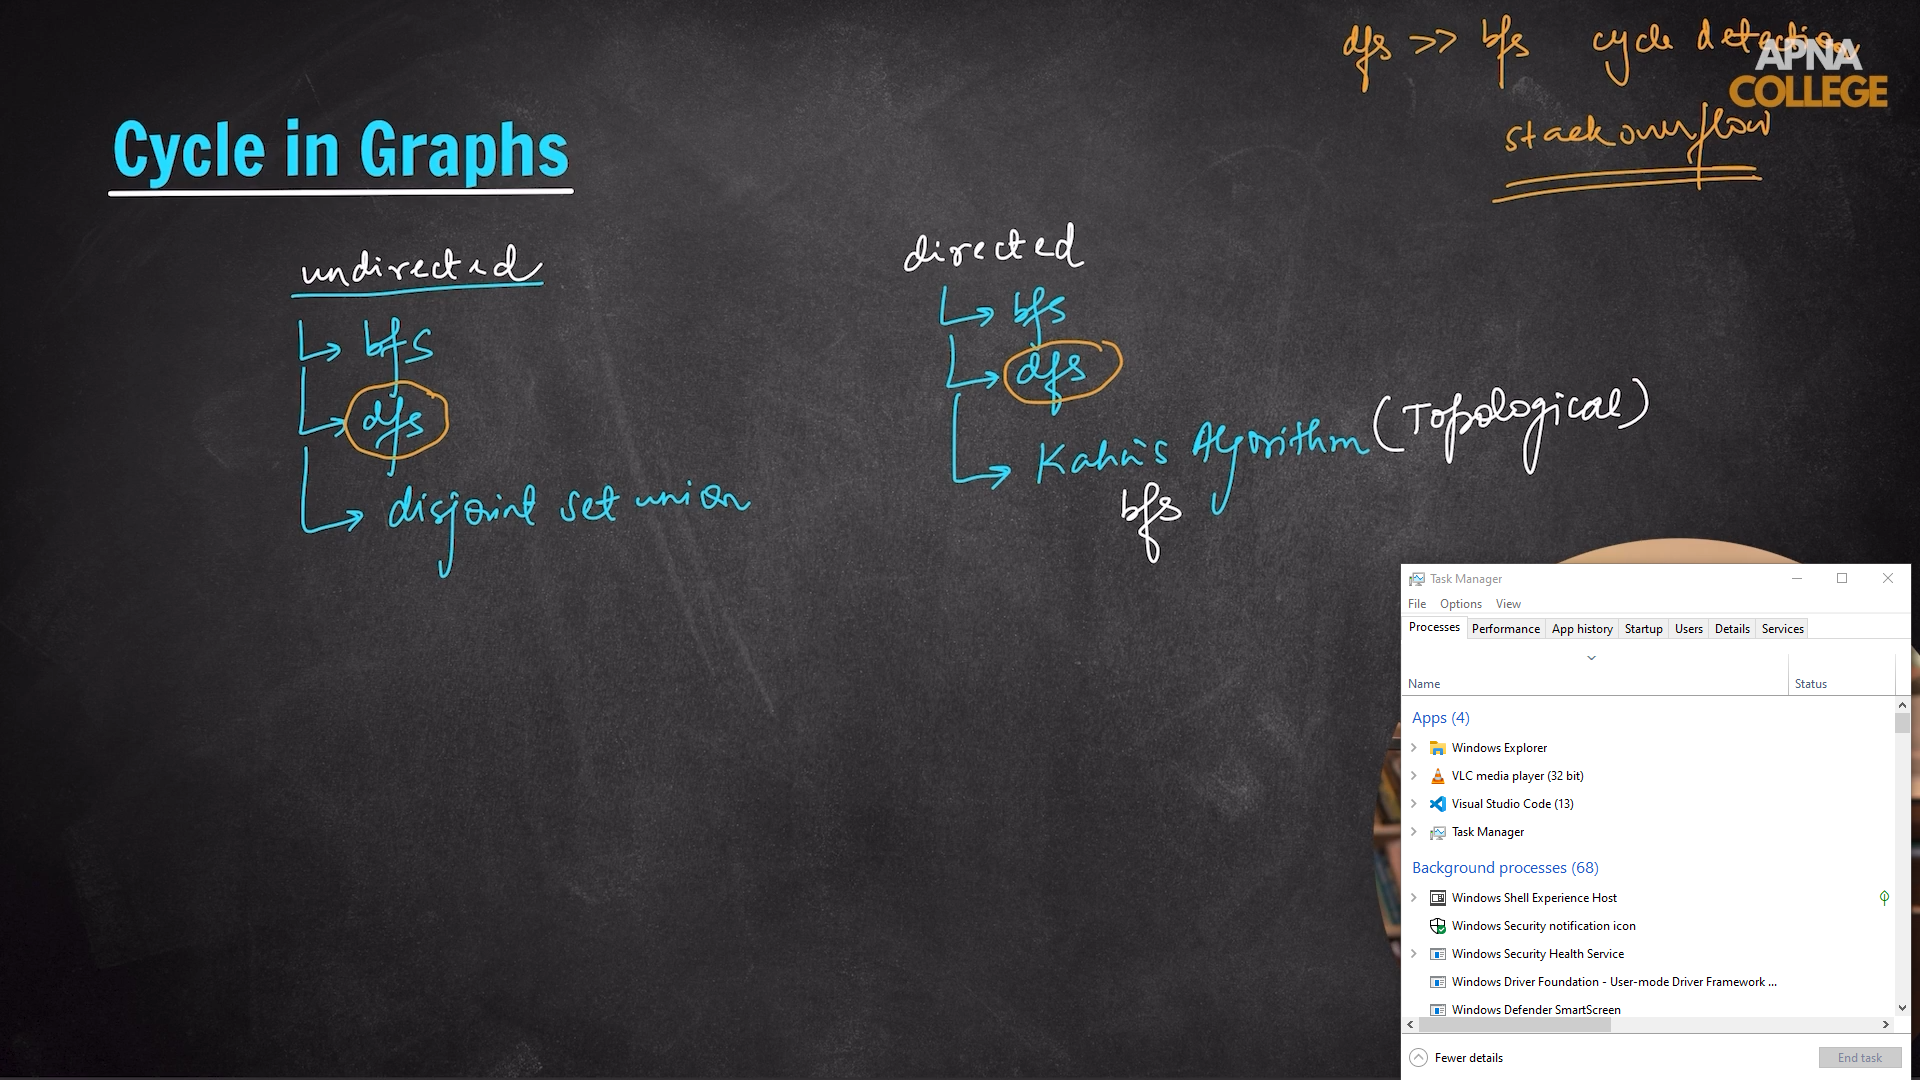 dfs >> bfs cycle detection
APNA
COLLEGE
stack overflow
Cycle in Graphs
undirected
bfs
dfs
disjoint set union
directed
bfs
dfs
Kahn's Algorithm (Topological)
bfs
Task Manager
File Options View
Processes Performance App history Startup Users Details Services
Name Status
Apps (4)
Windows Explorer
VLC media player (32 bit)
Visual Studio Code (13)
Task Manager
Background processes (68)
Windows Shell Experience Host
Windows Security notification icon
Windows Security Health Service
Windows Driver Foundation - User-mode Driver Framework ...
Windows Defender SmartScreen
Fewer details End task